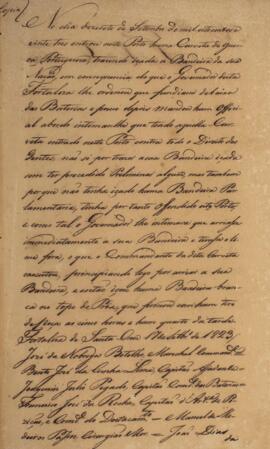 (Copia)
No dia dezesete de Setembro de mil oito centos e
vinte tres entrou neste Porto huma Curveta de Guerra
Portugueza, trazendo içada a Bandeira da sua
Nação, em consequencia do que o Governador desta
Fortaleza lhe ordenou que fundiasse debaixo
das Baterias e pouco depois mandou hum Offi-
cial abordo intimar-lhe que tendo aquella Cur-
veta entrado neste Porto contra todo o Direito das
Gentes, não só por trazer a sua Bandeira içada
sem ter precedido Preliminar algum mas tambem
por que não tinha içado huma Bandeira Par-
lamentaria, tinha por tanto offendido este Porto
e como tal o Governador lhe intimava que arriasse
immediatamente a sua Bandeira e
fora, o que o Commandante da dita Curveta
executou, principiando logo por arriar a sua
Bandeira, e então içou huma Bandeira bran-
ca no tope de Proa, que
as cinco horas e hum quarto da tarde
Fortaleza de Santa Cruz 17 de 1823
José da Nobrega Botelho, Marechal Command.e
Bento José da Cunha Lima, Capitão Ajudante
Joaquim Julio Capitão Com.e das Baterias
Francisco José da Rocha, Capitão d'
e Com.e do Destacam.to Manoel de Me-
deiros Cirurgião Mor João Dias da